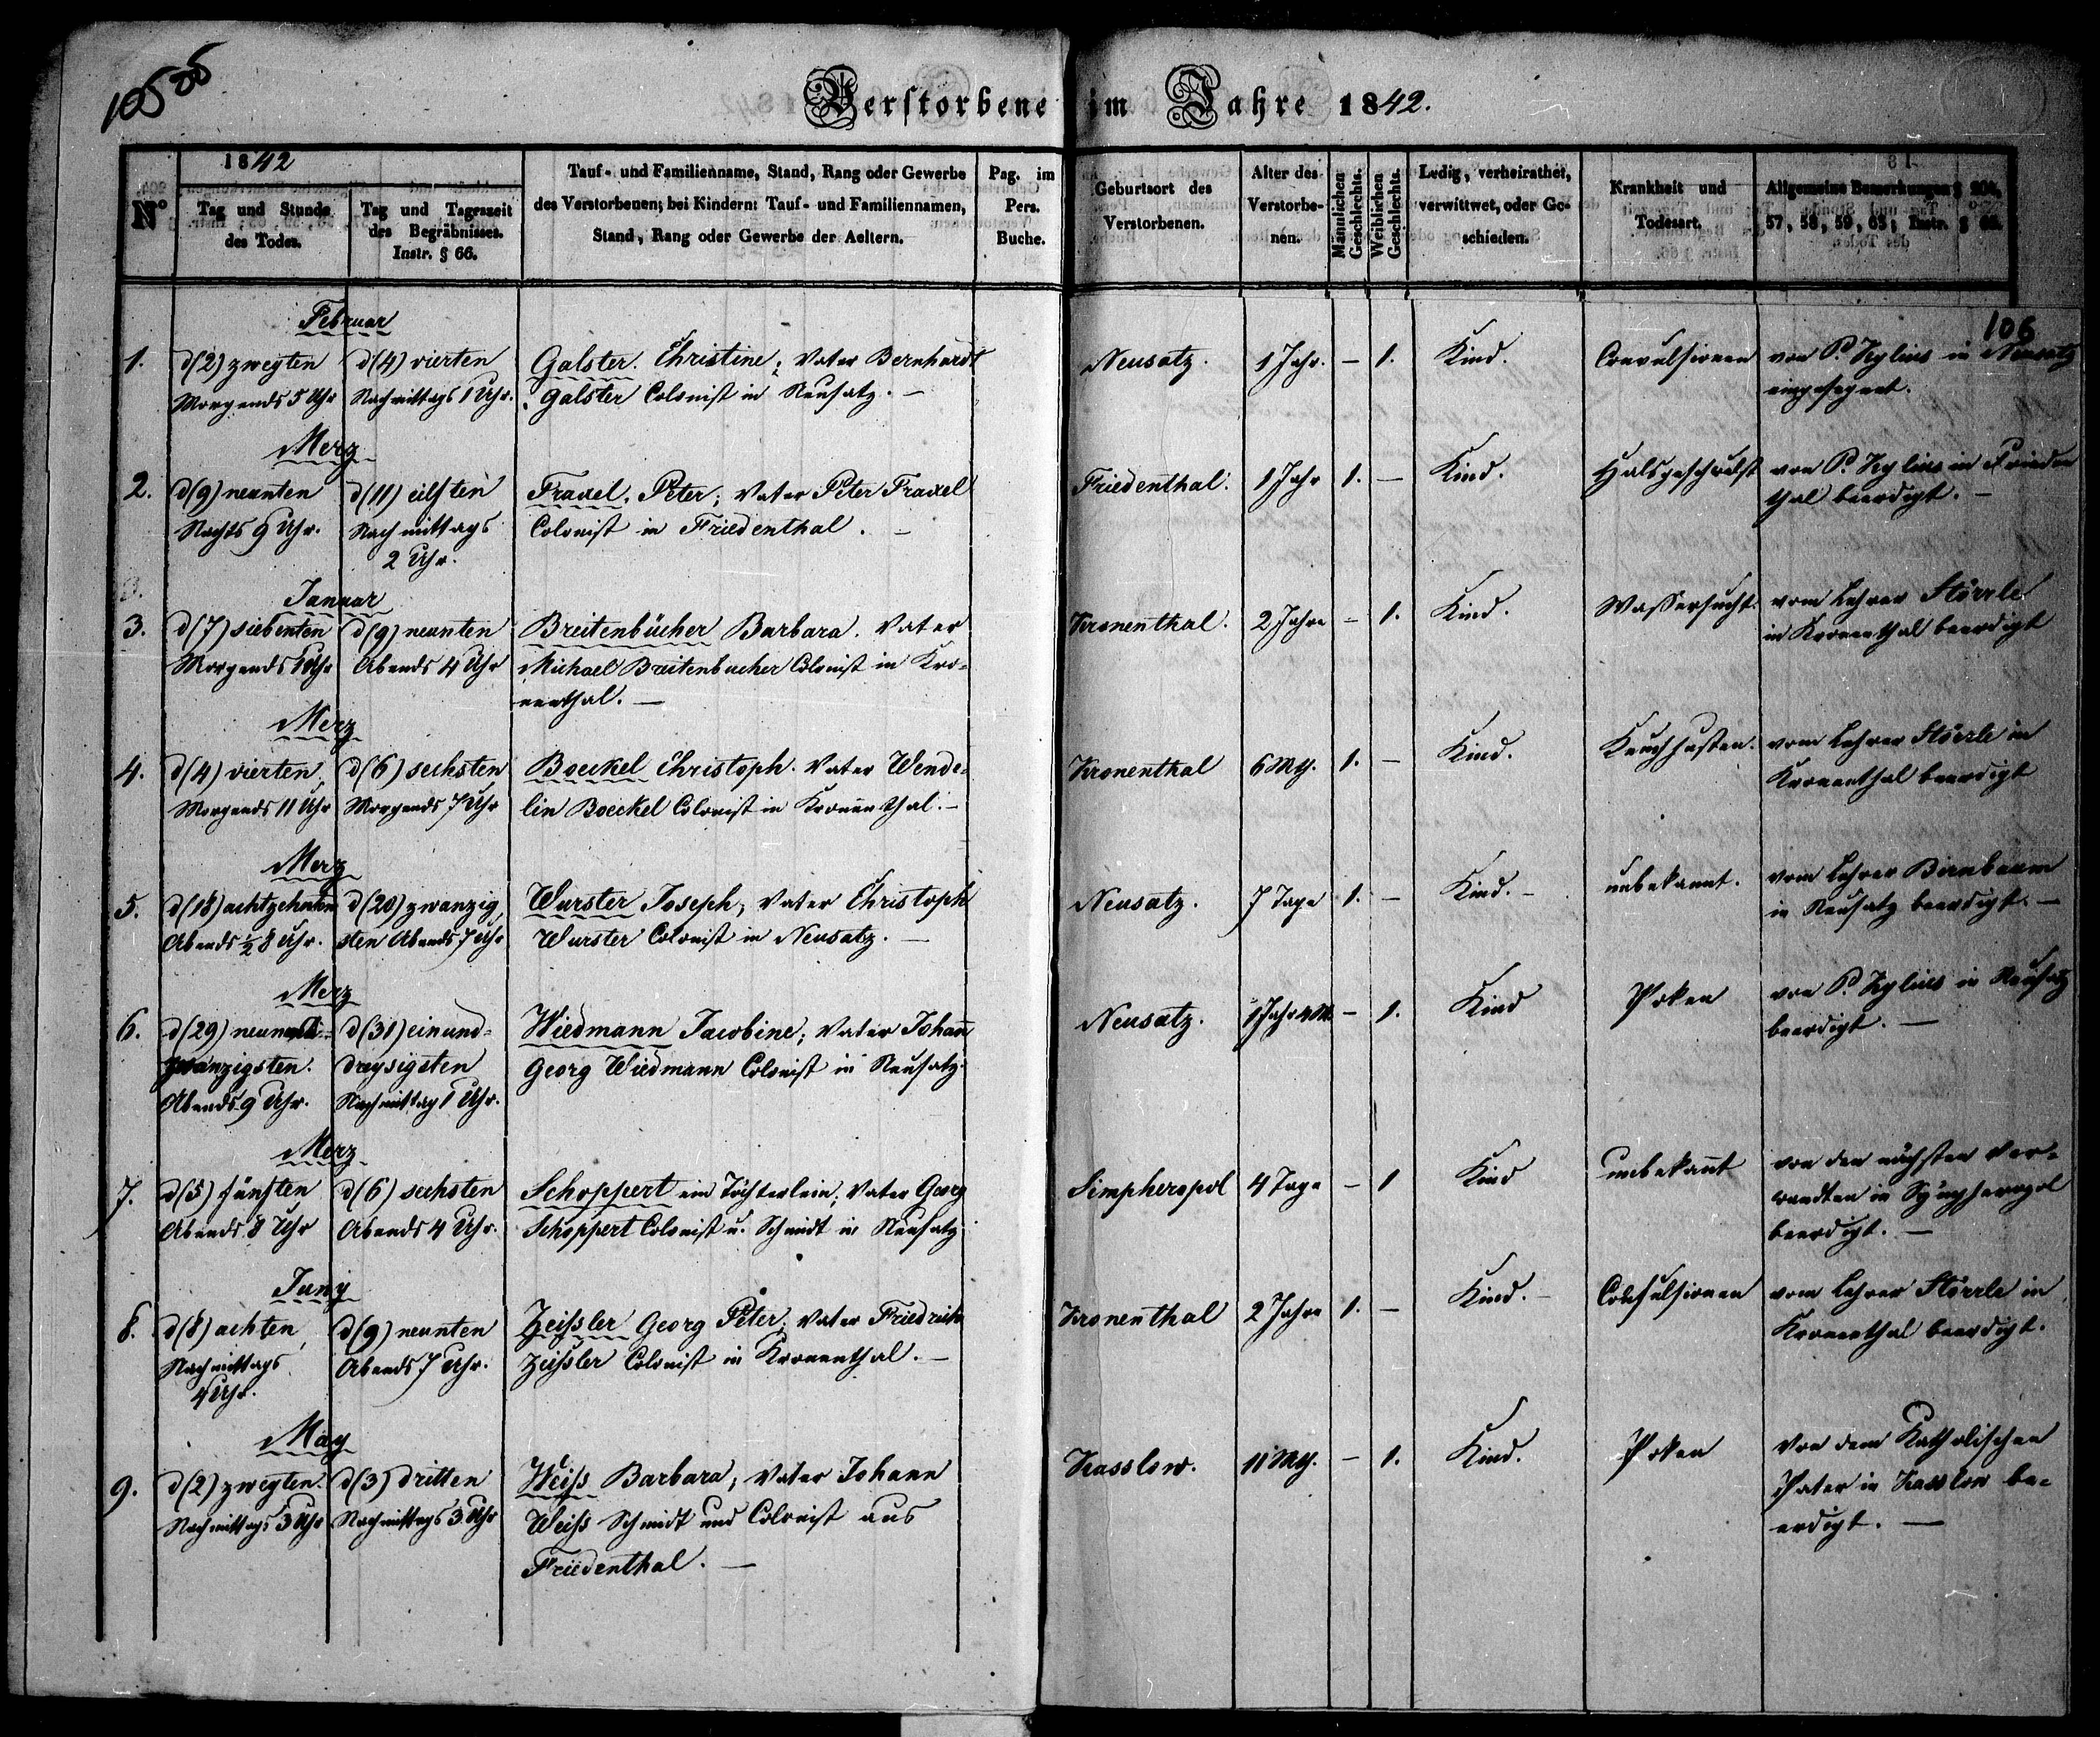 105
Verstorbene im Jahre 1842.
1842
N°
Tag und Stunde des Todes.
Tag und Tageszeit des Begräbnisses. Instr. § 66.
Tauf- und Familienname, Stand, Rang oder Gewerbe
des Verstorbenen; bei Kindern: Tauf- und Familiennamen,
Stand, Rang oder Gewerbe der Aeltern.
Pag. im Pers. Buche.
Geburtsort des Verstorbenen.
Alter des Verstorbenen.
Männlichen Geschlechts.
Weiblichen Geschlechts.
Ledig, verheirathet, verwittwet, oder Geschieden.
Krankheit und Todesart.
Allgemeine Bemerkungen § 204,
57, 58, 59, 65; Instr. § 66.
106
Februar
1. d(2) zweyten d(4) vierten Galster. Christine; Vater Bernhardt Neusatz. 1 Jahr. – 1. Kind. Convulsionen von P. Kylius in Neusatz
Morgends 5 Uhr Nachmittags 1 Uhr. Galster Colonist in Neusatz. – eingesegnet.
Merz
2. d(9) neunten d(11) eilften Fraxel. Peter; Vater Peter Fraxel Friedenthal. 1 Jahr 1. – Kind. Halsgeschwulst von P. Kylius in Frieden
Nachts 9 Uhr. Nachmittags Colonist in Friedenthal. – thal beerdigt. –
2 Uhr.
Januar
3. d(7) siebenten d(9) neunten Breitenbücher Barbara. Vater Kronenthal. 2 Jahre – 1. Kind. Wassersucht. vom Lehrer Störrle
Morgends Uhr Abends 4 Uhr Michael Breitenbucher Colonist in Kro- in Kronenthal beerdigt
nenthal. –
Merz
4. d(4) vierten d(6) sechsten Boeckel Christoph. Vater Wende- Kronenthal 6 Mt. 1. – Kind. Keuchhusten. vom Lehrer Störrle in
Morgends 11 Uhr Morgends 7 Uhr lin Boeckel Colonist in Kronenthal. – Kronenthal beerdigt
Merz
5. d(18) achtzehnten d(20) zwanzig Wurster Joseph; Vater Christoph Neusatz. 7 Tage 1. – Kind. – unbekannt. vom Lehrer Birnbaum
Abends ½ 8 Uhr. sten Abends 7 Uhr Wurster Colonist in Neusatz. – in Neusatz beerdigt. –
Merz
6. d(29) neunund- d(31) einund- Wiedmann Jacobine; Vater Johann Neusatz. 1 Jahr 4 M. – 1. Kind Poken von P. Kylius in Neusatz
zwanzigsten. dreysigsten Georg Wiedmann Colonist in Neusatz. beerdigt. –
Abends 9 Uhr. Nachmittag 1 Uhr.
Merz
7. d(5) fünften d(6) sechsten Schoppert ein Töchterlein; Vater Georg Simpheropol 4 Tage – 1 Kind unbekannt von den nächsten Ver-
Abends 8 Uhr Abends 4 Uhr. Schoppert Colonist u. Schmidt in Neusatz wandten in Sympheropol
beerdigt. –
Juny
8. d(8) achten d(9) neunten Zeissler Georg Peter; Vater Friedrich Kronenthal 2 Jahre 1. – Kind. – Convulsionen vom Lehrer Störrle in
Nachmittags Abends 7 Uhr. Zeissler Colonist in Kronenthal. – Kronenthal beerdigt.
4 Uhr.
May
9. d(2) zweyten. d(3) dritten Weiss Barbara; Vater Johann Kasslow. 11 Mt. – 1. Kind. Poken Von dem Katholischen
Nachmittags 3 Uhr Nachmittags 3 Uhr Weiss Schmidt und Colonist aus Pater in Kasslow be-
Friedenthal. – erdigt. –